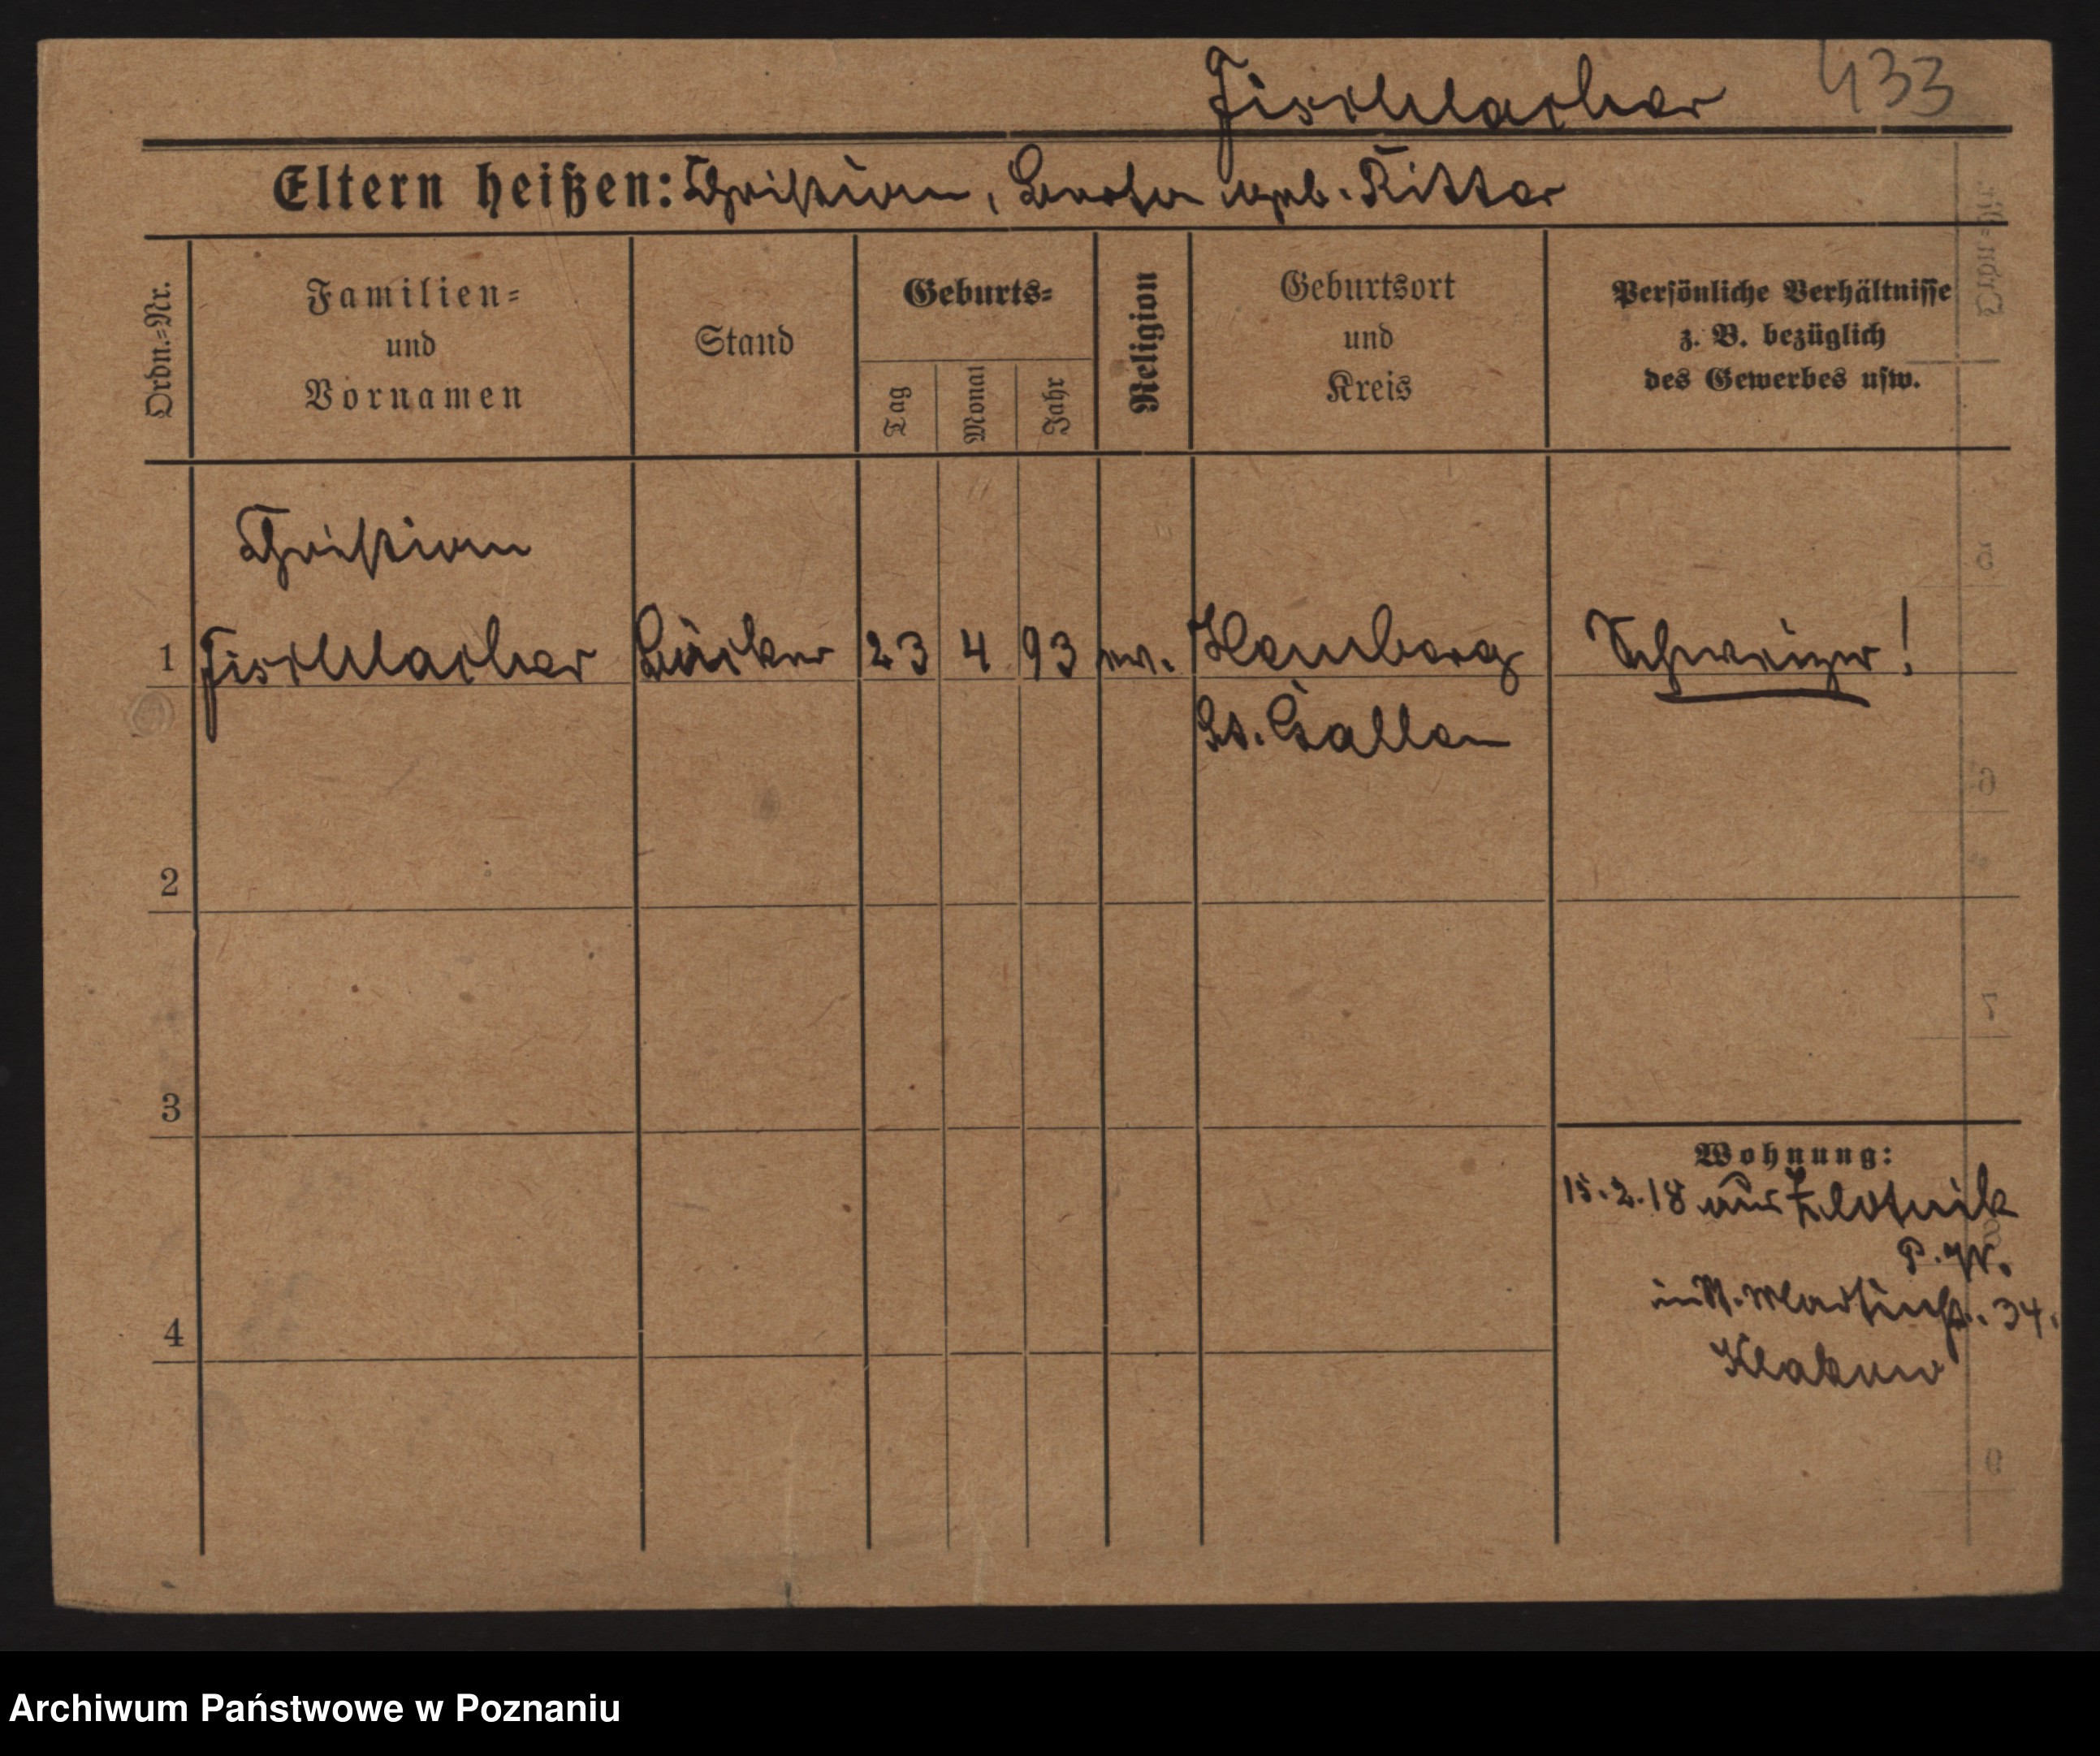 Fischbacher 433
Eltern heißen: Christian, Berta geb. Ritter
Ordn.=Nr.
Familien=
und
Vornamen
Stand
Geburts=
Tag
Monat
Jahr
Religion
Geburtsort
und
Kreis
Persönliche Verhältnisse
z. B. bezüglich
des Gewerbes usw.
Christian
1 Fischbacher Bäcker 23 4 93 ev. Hemberg Schweizer!
St. Gallen
2
3
4
Wohnung:
15.2.18 aus Zlotnik
P. W.
in St. Martinstr. 34.
Archiwum Państwowe w Poznaniu